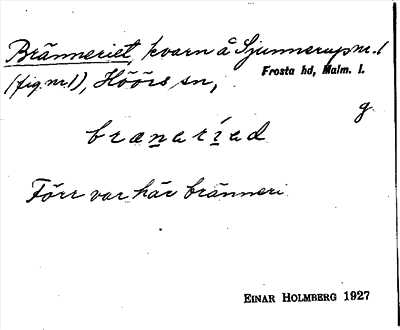 Bränneriet, kvarn å Sjunnerup nr. 1
(fig. nr. 1), Höörs sn,
Frosta hd, Malm. l.
g
brænəríəd
Förr var här bränneri.
EINAR HOLMBERG 1927